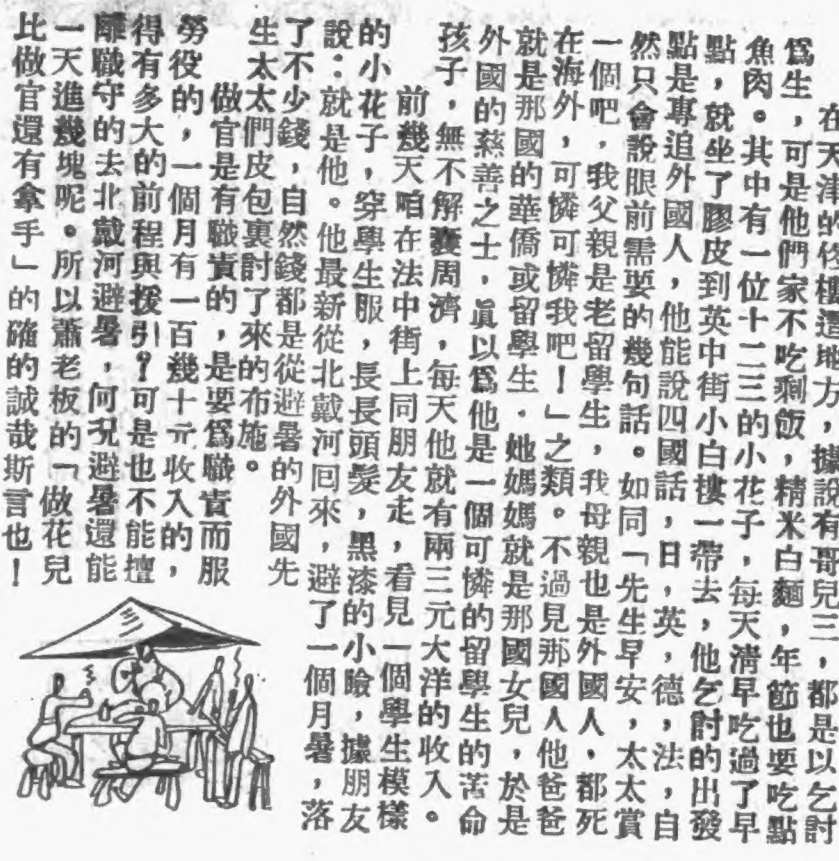 在天津的佟樓這地方，據說有哥兒三，都是以乞討
爲生，可是他們家不吃剩飯，精米白麵，年節也要吃點
魚肉。其中有一位十二三的小花子，每天清早吃過了早
點，就坐了膠皮到英中街小白樓一帶去，他乞討的出發
點是專追外國人，他能說四國話，日，英，德，法，自
然只會說眼前需要的幾句話。如同「先生早安，太太賞
一個吧，我父親是老留學生，我母親也是外國人，都死
在海外，可憐可憐我吧！」之類。不過見那國人他爸爸
就是那國的華僑或留學生，她媽媽就是那國女兒，於是
外國的慈善之士，眞以爲他是一個可憐的留學生的苦命
孩子，無不解囊周濟，每天他就有兩三元大洋的收入。
前幾天咱在法中街上同朋友走，看見一個學生模樣
的小花子，穿學生服，長長頭髮，黑漆的小臉，據朋友
說：就是他。他最新從北戴河回來，避了一個月暑，落
了不少錢，自然錢都是從避暑的外國先
生太太們皮包裏討了來的布施。
做官是有職責的，是要爲職責而服
勞役的，一個月有一百幾十元收入的，
得有多大的前程與援引？可是也不能擅
離職守的去北戴河避暑，何況避暑還能
一天進幾塊呢。所以蕭老板的「做花兒
比做官還有拿手」的確的誠哉斯言也！